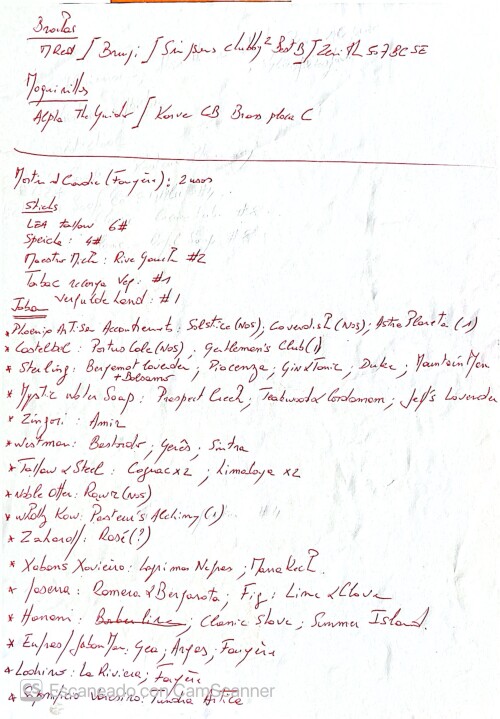 Brochas
M Red ∫ Bruji ∫ Simpsons Chubby 2 Best B ∫ Zenith 507BC SE
Maquinillas
Alpha The Guide ∫ Karve CB Brass plate C
(Fougère): 2 usos
Sticks
LEA tallow 6#
Speick: 4#
Rive Gauch #2
Tabac recarga Veg: #1
Vergulde Hand: #1
Jabon
* Phoenix Artisan Accoutrements: Solstice (NOS); Cavendish (NOS); Astra Planeta (1)
* Castelbel: Portus Cale (NOS), Gentlemen's Club (1)
* Sterling: Bergamot Lavender; Piacenza; Gin & Tonic; Duke; Mountain Man
+ Balsamo
* Mystic Water Soap: Prospect Creek; Teakwood & Cardamom; Jeff's Lavender
* Zingari: Amir
* Westman: Bastardo; Gerês; Sintra
* Tallow & Steel: Cognac x2; Himalaya x2
* Noble Otter: Rawr (NOS)
* Wholly Kaw: Pasteur's Alchimy (1)
* Zaharoff: Rosé (?)
* Xabons Xavieiro: Lagrimas Negras; Marrakech.
* Romero & Bergamota; Fig; Lime & Clove
* Classic Shave; Summer Island.
* JabonMan: Gea; Argos, Fougère
* La Riviera; Fougère
* Saponificio Varesino: Tundra Artica
CS Escaneado con CamScanner